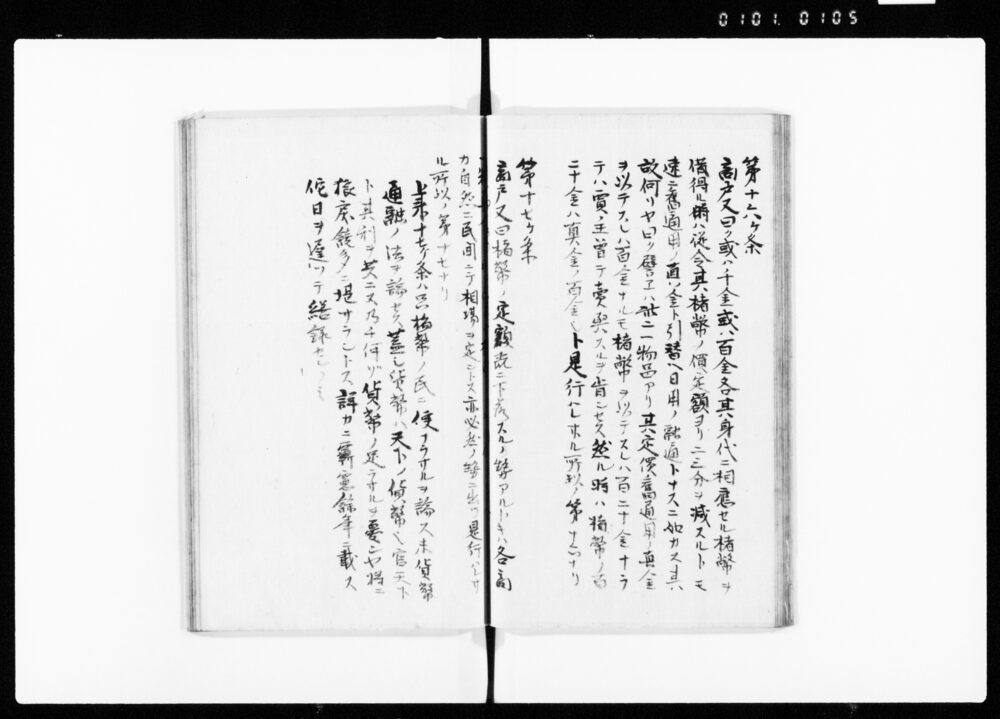 0101.0105
第十六ケ条
商戸又曰ク或ハ千金或ハ百金各其身代ニ相應セル楮幣ヲ
借得ル時ハ従令其楮幣ノ價定額ヨリ二三分ヲ減スルトモ
速ニ舊通用ノ真金ト引替ヘ日用ノ融通トナスニ如カス其
故何ソヤ曰ク譬エハ此ニ一物品アリ其定價舊通用ノ真金
ヲ以テスレハ百金ナルモ楮幣ヲ以テスレハ百二十金ナラ
テハ賣主曽テ賣與スルヲ肯ンセス然ル時ハ楮幣ノ百
二十金ハ真金ノ百金ト是行ハレサル所以ノ第十六ナリ
第十七ケ条
商戸又曰楮幣ノ定額既ニ下落スルノ勢アルトキハ各商
カ自然ニ民間ニテ相場ヲ定ントス亦必然ノ勢ニ出ツ是行ハレサ
ル所以ノ第十七ナリ
上来十七ケ条ハ只楮幣ノ民ニ便ナラサルヲ論ス未貨幣
通融ノ法ヲ論セス蓋シ貨幣ハ天下ノ貨幣 官天下
ト其利ヲ共ニス乃チ何ソ貨幣ノ足ラサルヲ憂ンヤ将ニ
饒多ニ堪サラントス詳カニ 餘年ニ載ス
他日ヲ逐ツテ繕録セン